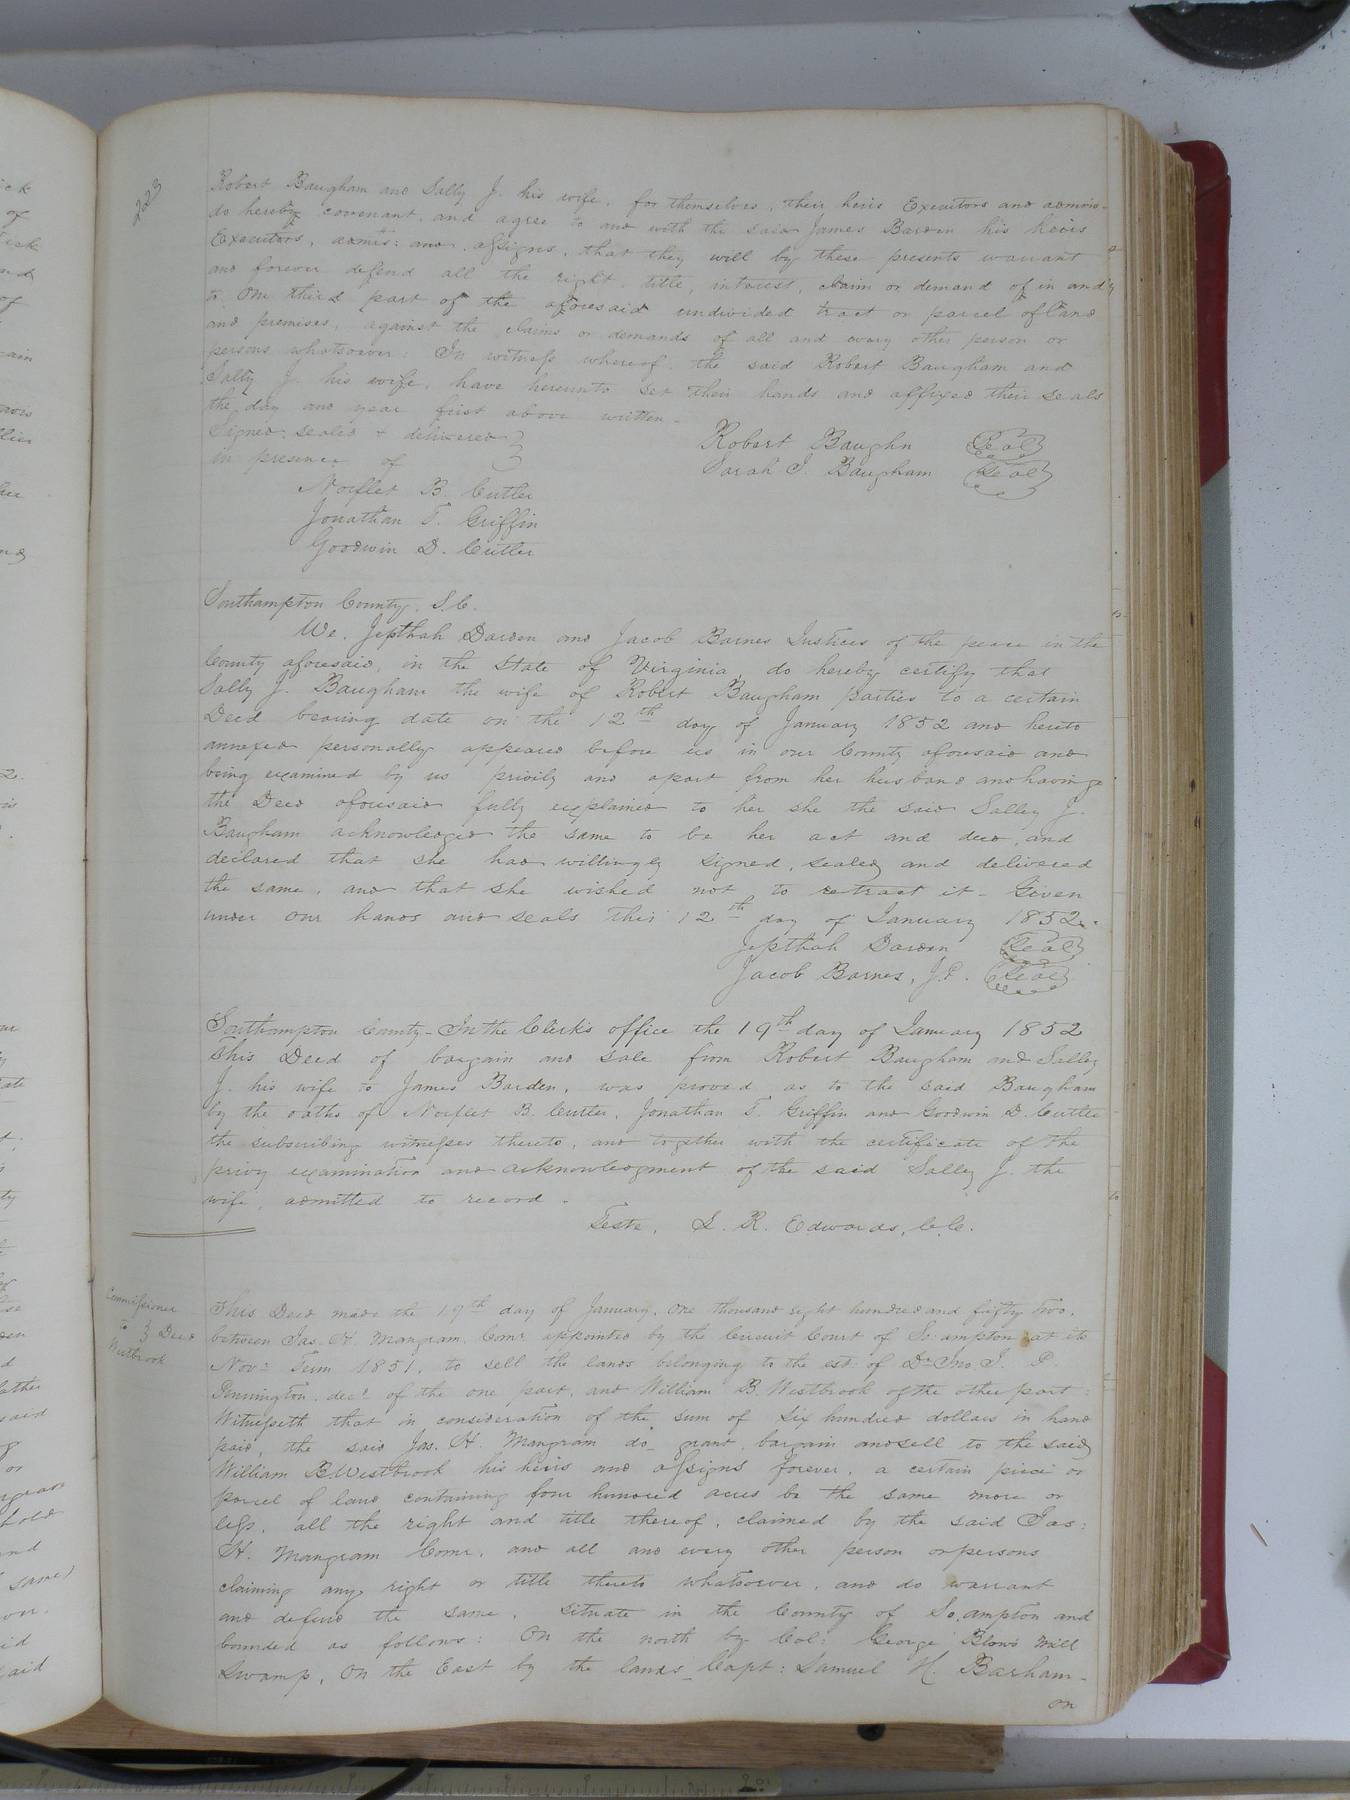 223
Robert Baugham and Sally J. his wife, for themselves, their heirs Executors and admors.
do hereby covenant, and agree to and with the said James Barden his heirs
Executors, admrs: and assigns, that they will by these presents warrant
and forever defend all the right, title, interest, claim or demand of in and
to One third part of the aforesaid undivided tract or parcel of land
and premises, against the claims or demands of all and every other person or
persons whatsoever: In witness whereof the said Robert Baugham and
Sally J. his wife, have hereunto set their hands and affixed their seals
the day and year first above written.
Signed, sealed & delivered
in presence of
Robert Baughn Seal
Sarah J. Baugham Seal
Norflet B. Cutler
Jonathan T. Griffin
Goodwin D. Cutler
Southampton County, S.C.
We, Jepthah Darden and Jacob Barnes Justices of the peace in the
County aforesaid, in the State of Virginia, do hereby certify that
Sally J. Baugham the wife of Robert Baugham parties to a certain
Deed bearing date on the 12th day of January 1852 and hereto
annexed personally appeared before us in our County aforesaid and
being examined by us privily and apart from her husband and having
the Deed aforesaid fully explained to her she the said Salley J.
Baugham acknowledged the same to be her act and deed, and
declared that she had willingly signed, sealed and delivered
the same, and that she wished not to retract it - Given
under our hands and seals this 12th day of January 1852.
Jepthah Darden Seal
Jacob Barnes, J.P. Seal
Southampton County - In the Clerk's office the 19th day of January 1852
This Deed of bargain and sale from Robert Baugham and Salley
J. his wife to James Barden, was proved as to the said Baugham
by the oaths of Norflet B. Cutler, Jonathan T. Griffin and Goodwin D. Cutler
the subscribing witnesses thereto, and together with the certificate of the
privy examination and acknowledgment of the said Salley J. the
wife, admitted to record.
Teste, L. R. Edwards, C.C.
Commissioner
to } Deed
Westbrook
This Deed made the 19th day of January, one thousand eight hundred and fifty two,
between Jas. H. Mangram, Comr. appointed by the Circuit Court of So: ampton at its
Novr. Term 1851, to sell the lands belonging to the est: of Dr. Jno. J. P.
Pennington, decd. of the one part, and William B. Westbrook of the other part:
Witnesseth that in consideration of the sum of six hundred dollars in hand
paid, the said Jas. H. Mangram do grant, bargain and sell to the said
William B. Westbrook his heirs and assigns forever, a certain piece or
parcel of land containing four hundred acres be the same more or
less, all the right and title thereof, claimed by the said Jas:
H. Mangram Comr. and all and every other person or persons
claiming any right or title thereto whatsoever, and do warrant
and defend the same, situate in the County of So.ampton and
bounded as follows: On the north by Col: George Blow's mill
swamp, On the East by the lands Capt: Samuel H. Barham -
on